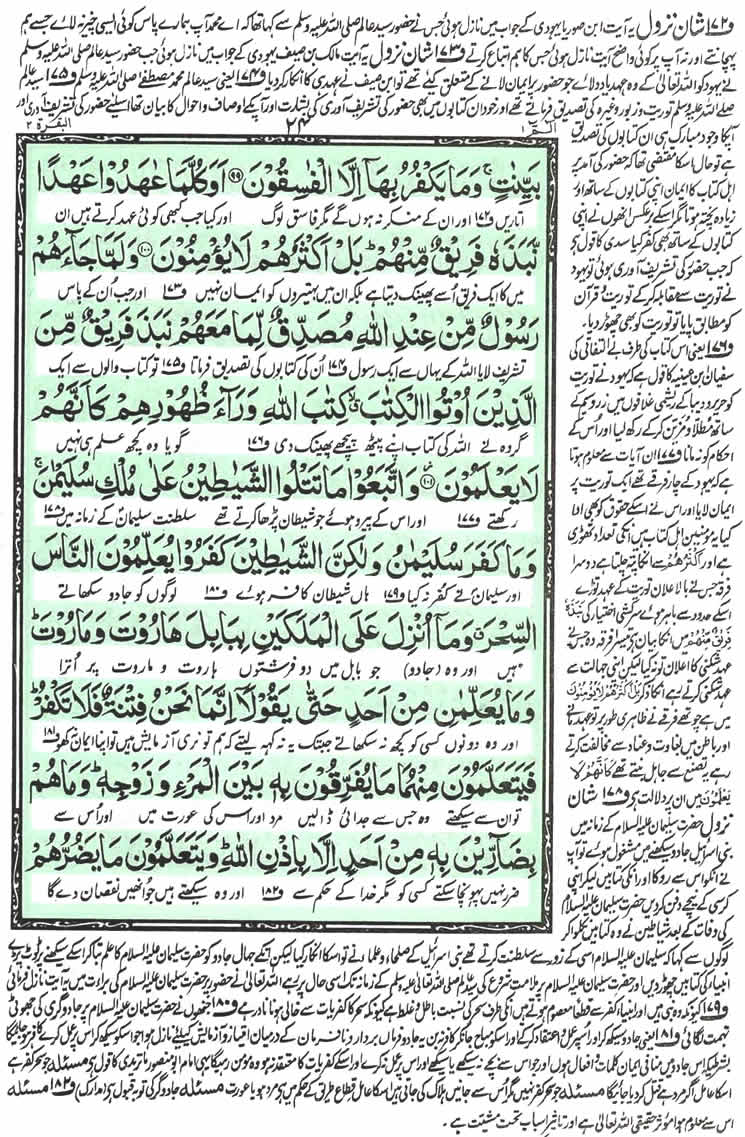 و١٧٢ شان نزول یہ آیت ابن صوریا یہودی کے جواب میں نازل ہوئی جس نے حضور سید عالم صلی اللہ علیہ وسلم سے کہا تھا کہ اے محمد آپ ہمارے پاس کوئی ایسی چیز نہ لائے جسے ہم
پہچانتے اور نہ آپ پر کوئی واضح آیت نازل ہوئی جس کا ہم اتباع کرتے و١٧٣ شان نزول یہ آیت مالک بن صیف یہودی کے جواب میں نازل ہوئی جب حضور سید عالم صلی اللہ علیہ وسلم
نے یہود کو اللہ تعالیٰ کے وہ عہد یاد دلائے جو حضور پر ایمان لانے کے متعلق کیے گئے تھے تو ابن صیف نے عہد ہی کا انکار کردیا و١٧٤ یعنی سید عالم محمد مصطفیٰ صلی اللہ علیہ وسلم و١٧٥ سید عالم
صلی اللہ علیہ وسلم توریت و زبور وغیرہ کی تصدیق فرماتے تھے اور خود ان کتابوں میں بھی حضور کی تشریف آوری کی بشارت اور آپ کے اوصاف و احوال کا بیان تھا اسلیے حضور کی تشریف آوری اور
الٓمّٓ ١
٢٤
البقرة ٢
بَيِّنٰتٍ ۚ وَمَا يَكْفُرُ بِهَآ اِلَّا الْفٰسِقُوْنَ ٩٩ اَوَكُلَّمَا عٰهَدُوْا عَهْدًا
اتاریں و١٧٢ اور ان کے منکر نہ ہوں گے مگر فاسق لوگ اور کیا جب کبھی کوئی عہد کرتے ہیں ان
نَّبَذَهٗ فَرِيْقٌ مِّنْهُمْ ؕ بَلْ اَكْثَرُهُمْ لَا يُؤْمِنُوْنَ ١٠٠ وَلَمَّا جَآءَهُمْ
میں کا ایک فریق اُسے پھینک دیتا ہے بلکہ ان میں بہتیروں کو ایمان نہیں و١٧٣ اور جب اُن کے پاس
رَسُوْلٌ مِّنْ عِنْدِ اللّٰهِ مُصَدِّقٌ لِّمَا مَعَهُمْ نَبَذَ فَرِيْقٌ مِّنَ
تشریف لایا اللہ کے یہاں سے ایک رسول و١٧٤ اُن کی کتابوں کی تصدیق فرماتا و١٧٥ تو کتاب والوں سے ایک
الَّذِيْنَ اُوْتُوا الْكِتٰبَ ۙ كِتٰبَ اللّٰهِ وَرَآءَ ظُهُوْرِهِمْ كَاَنَّهُمْ
گروہ نے اللہ کی کتاب اپنے پیٹھ پیچھے پھینک دی و١٧٦ گویا وہ کچھ علم ہی نہیں
لَا يَعْلَمُوْنَ ١٠١ وَاتَّبَعُوْا مَا تَتْلُوا الشَّيٰطِيْنُ عَلٰى مُلْكِ سُلَيْمٰنَ ۚ
رکھتے و١٧٧ اور اس کے پیرو ہوئے جو شیطان پڑھا کرتے تھے سلطنت سلیمان کے زمانہ میں و١٧٨
وَمَا كَفَرَ سُلَيْمٰنُ وَلٰكِنَّ الشَّيٰطِيْنَ كَفَرُوْا يُعَلِّمُوْنَ النَّاسَ
اور سلیمان نے کفر نہ کیا و١٧٩ ہاں شیطان کافر ہوئے و١٨٠ لوگوں کو جادو سکھاتے
السِّحْرَ ۗ وَمَآ اُنْزِلَ عَلَى الْمَلَكَيْنِ بِبَابِلَ هَارُوْتَ وَمَارُوْتَ ؕ
ہیں اور وہ (جادو) جو بابل میں دو فرشتوں ہاروت و ماروت پر اُترا
وَمَا يُعَلِّمٰنِ مِنْ اَحَدٍ حَتّٰى يَقُوْلَآ اِنَّمَا نَحْنُ فِتْنَةٌ فَلَا تَكْفُرْ ؕ
اور وہ دونوں کسی کو کچھ نہ سکھاتے جبتک یہ نہ کہہ لیتے کہ ہم تو نری آزمایش ہیں تو اپنا ایمان نہ کھو و١٨١
فَيَتَعَلَّمُوْنَ مِنْهُمَا مَا يُفَرِّقُوْنَ بِهٖ بَيْنَ الْمَرْءِ وَزَوْجِهٖ ؕ وَمَا هُمْ
تو ان سے سیکھتے وہ جس سے جدائی ڈالیں مرد اور اس کی عورت میں اور اُس سے
بِضَآرِّيْنَ بِهٖ مِنْ اَحَدٍ اِلَّا بِاِذْنِ اللّٰهِ ؕ وَيَتَعَلَّمُوْنَ مَا يَضُرُّهُمْ
ضرر نہیں پہونچا سکتے کسی کو مگر خدا کے حکم سے و١٨٢ اور وہ سیکھتے ہیں جو انھیں نقصان دے گا
آپکا وجود مبارک ہی ان کتابوں کی تصدیق
ہے تو حال اسکا مقتضی تھا کہ حضور کی آمد پر
اہل کتاب کا ایمان اپنی کتابوں کے ساتھ اور
زیادہ پختہ ہوتا مگر اسکے برعکس انھوں نے اپنی
کتابوں کے ساتھ بھی کفر کیا سدی کا قول ہے
کہ جب حضور کی تشریف آوری ہوئی تو یہود
نے توریت سے مقابلہ کرکے توریت و قرآن
کو مطابق پایا تو توریت کو بھی چھوڑ دیا۔
و١٧٦ یعنی اس کتاب کی طرف بے التفاتی کی
سفیان بن عیینہ کا قول ہے کہ یہود نے توریت
کو حریر و دیبا کے ریشمی غلافوں میں زر و سیم کے
ساتھ مطلا و مزین کرکے رکھ لیا اور اس کے
احکام کو نہ مانا و١٧٧ ان آیات سے معلوم ہوتا
ہے کہ یہود کے چار فرقے تھے ایک توریت پر
ایمان لایا اور اس نے اسکے حقوق کو بھی ادا
کیا یہ مومنین اہل کتاب ہیں انکی تعداد تھوڑی
ہے اور اَكْثَرُهُمْ سے انکا پتہ چلتا ہے دوسرا
فرقہ جس نے بالاعلان توریت کے عہد توڑے
اسکے حدود سے باہر ہوئے سرکشی اختیار کی نَبَذَهٗ
فَرِيْقٌ مِّنْهُمْ میں انکا بیان ہے تیسرا فرقہ وہ جس نے
عہد شکنی کا اعلان تو نہ کیا لیکن اپنی جہالت سے
عہد شکنی کرتے رہے انکا ذکر بَلْ اَكْثَرُهُمْ لَا يُؤْمِنُوْنَ
میں ہے چوتھے فرقے نے ظاہری طور پر تو عہد مانے
اور باطن میں بغاوت و عناد سے مخالفت کرتے
رہے یہ تصنع سے جاہل بنتے تھے كَاَنَّهُمْ لَا
يَعْلَمُوْنَ میں ان پر دلالت ہے و١٧٨ شان
نزول حضرت سلیمان علیہ السلام کے زمانہ میں
بنی اسرائیل جادو سیکھنے میں مشغول ہوئے تو آپ
نے انکو اس سے روکا اور انکی کتابیں لیکر اپنی
کرسی کے نیچے دفن کردیں حضرت سلیمان علیہ السلام
کی وفات کے بعد شیاطین نے وہ کتابیں نکلوا کر
لوگوں سے کہا کہ سلیمان علیہ السلام اسی کے زور سے سلطنت کرتے تھے بنی اسرائیل کے صلحاء و علماء نے تو اسکا انکار کیا لیکن انکے جہال جادو کو حضرت سلیمان علیہ السلام کا علم بتا کر اسکے سیکھنے پر ٹوٹ پڑے
انبیاء کی کتابیں چھوڑ دیں اور حضرت سلیمان علیہ السلام پر ملامت شروع کی سید عالم صلی اللہ علیہ وسلم کے زمانہ تک اسی حال پر رہے اللہ تعالیٰ نے حضور پر حضرت سلیمان علیہ السلام کی براءت میں یہ آیت نازل فرمائی
و١٧٩ کیونکہ وہ نبی ہیں اور انبیاء کفر سے قطعاً معصوم ہوتے ہیں انکی طرف سحر کی نسبت باطل و غلط ہے کیونکہ سحر کا کفریات سے خالی ہونا نادر ہے و١٨٠ جنھوں نے حضرت سلیمان علیہ السلام پر جادوگری کی جھوٹی
تہمت لگائی و١٨١ یعنی جادو سیکھ کر اور اسپر عمل و اعتقاد کرکے اور اسکو مباح جان کر کافر نہ بن یہ جادو فرماں بردار و نافرمان کے درمیان امتیاز و آزمایش کیلئے نازل ہوا جو اسکو سیکھ کر اس پر عمل کرے کافر ہو جائیگا
بشرطیکہ اس جادو میں منافی ایمان کلمات و افعال ہوں اور جو اس سے بچے نہ سیکھے یا سیکھے اور اس پر عمل نہ کرے اور اسکے کفریات کا معتقد نہ ہو وہ مومن رہیگا یہی امام ابو منصور ماتریدی کا قول ہے مسئلہ جو سحر کفر ہے
اسکا عامل اگر مرد ہے قتل کردیا جائیگا مسئلہ جو سحر کفر نہیں مگر اُس سے جانیں ہلاک کی جاتی ہیں اسکا عامل قطاع طریق کے حکم میں ہے مرد ہو یا عورت مسئلہ جادوگر کی توبہ قبول ہے (مدارک) و١٨٢ مسئلہ
اس سے معلوم ہوا مؤثر حقیقی اللہ تعالیٰ ہے اور تاثیر اسباب تحت مشیت ہے۔